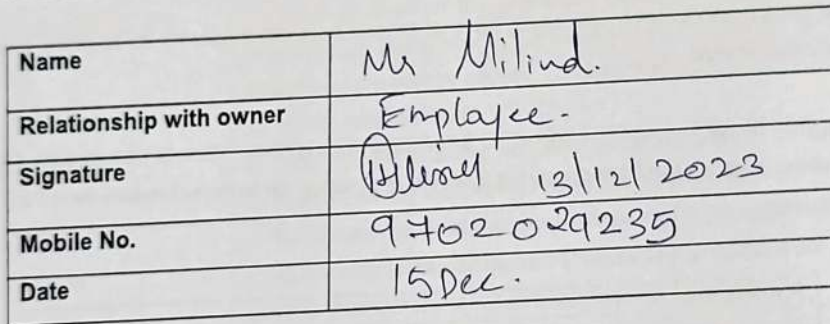 Name Mr Milind.
Relationship with owner Employee.
Signature 13/12/2023
Mobile No. 9702029235
Date 15 Dec.